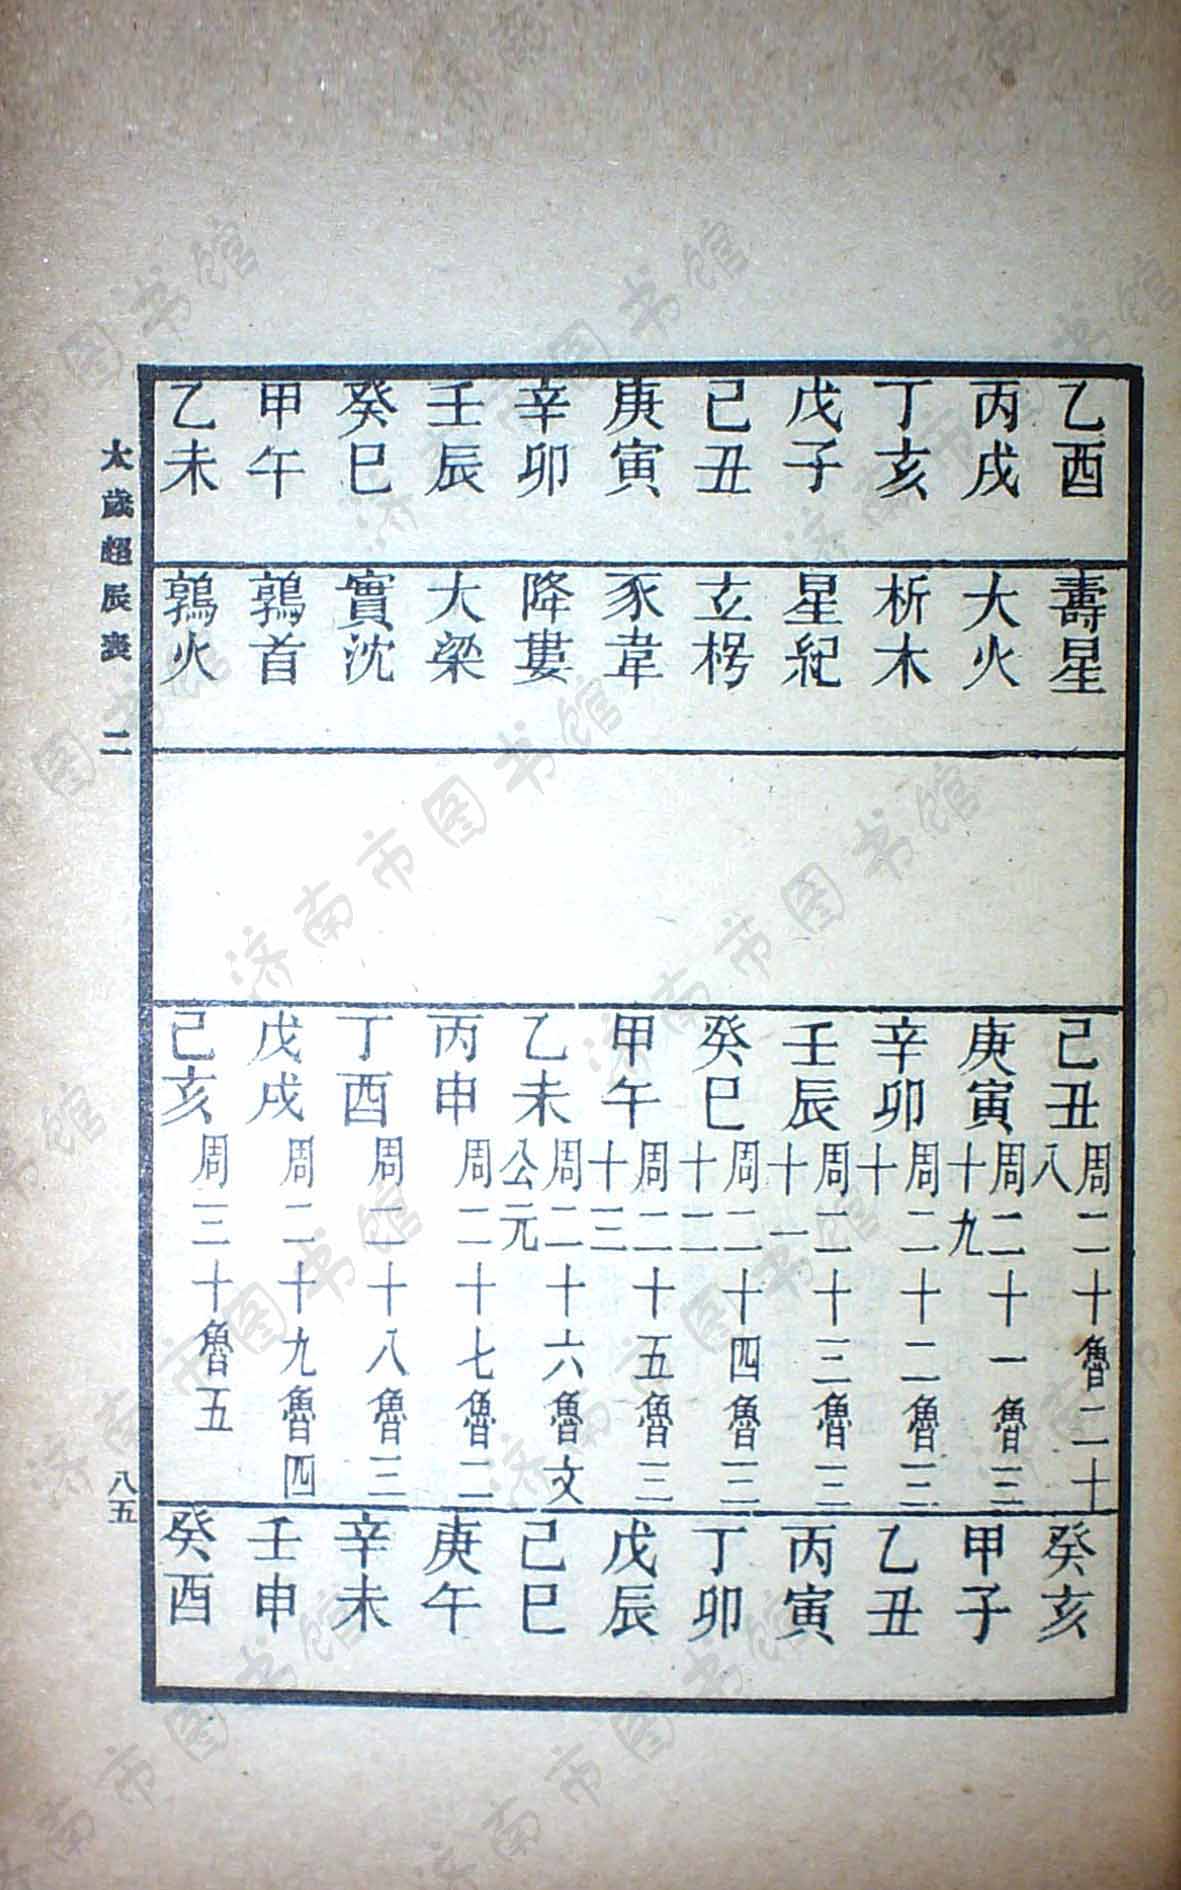 乙酉
丙戌
丁亥
戊子
己丑
庚寅
辛卯
壬辰
癸巳
甲午
乙未
壽星
大火
析木
星紀
玄枵
豕韋
降婁
大梁
實沈
鶉首
鶉火
己丑 周二十魯二十八
庚寅 周二十一魯二十九
辛卯 周二十二魯三十
壬辰 周二十三魯三十一
癸巳 周二十四魯三十二
甲午 周二十五魯三十三
乙未 周二十六魯文公元
丙申 周二十七魯二
丁酉 周二十八魯三
戊戌 周二十九魯四
己亥 周三十魯五
癸亥
甲子
乙丑
丙寅
丁卯
戊辰
己巳
庚午
辛未
壬申
癸酉
太歲超辰表 二
八五
济南市图书馆